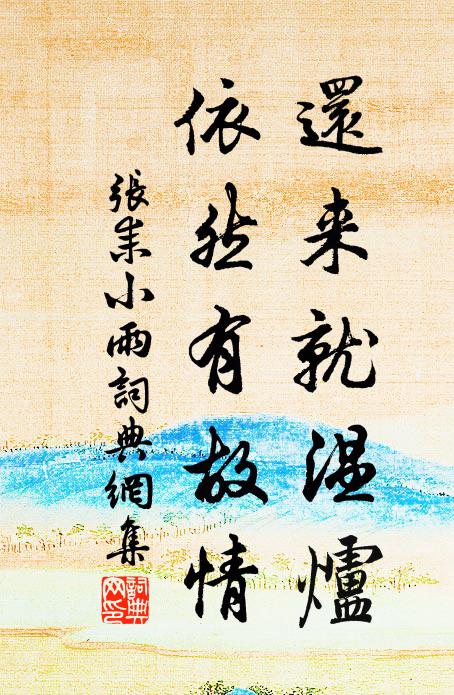 還来就温爐
依然有故情
張耒小雨詞典網集